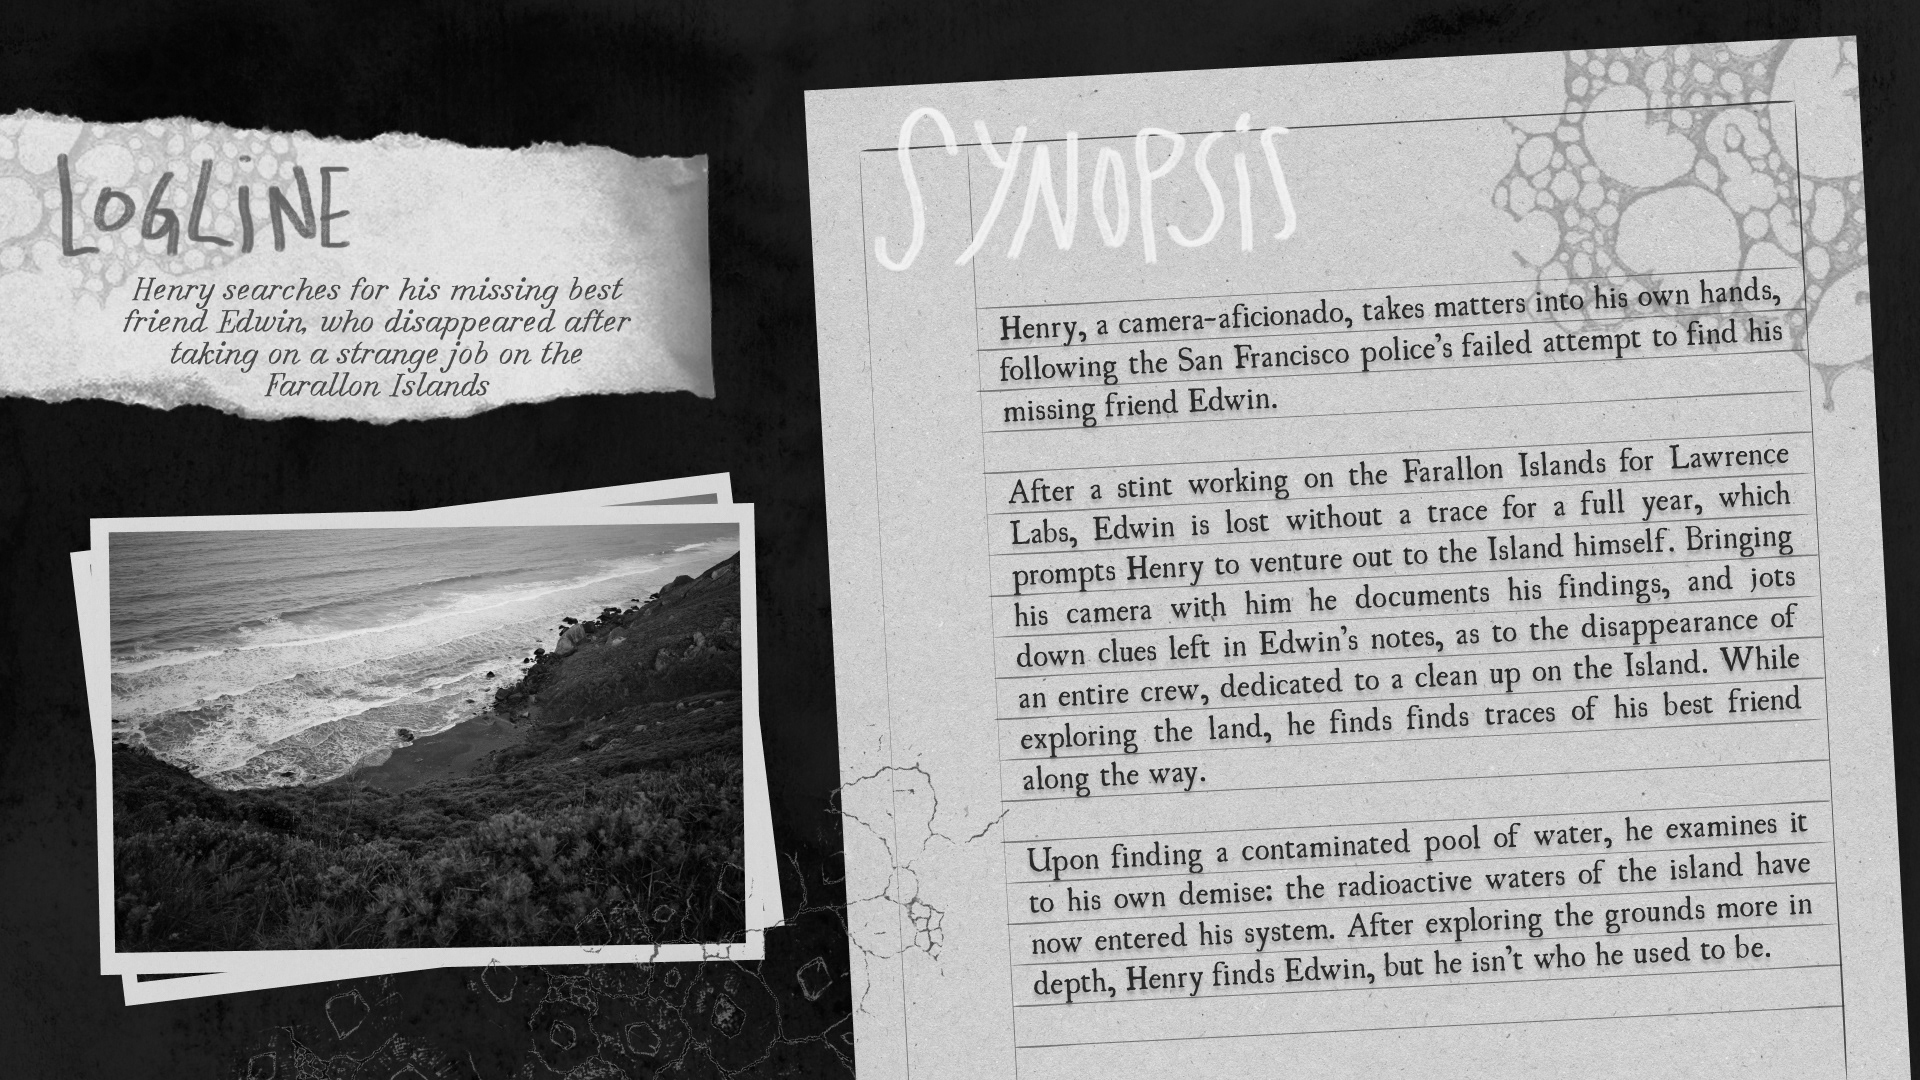 LOGLiNE
Henry searches for his missing best
friend Edwin, who disappeared after
taking on a strange job on the
Farallon Islands
SYNOPSiS
Henry, a camera-aficionado, takes matters into his own hands,
following the San Francisco police's failed attempt to find his
missing friend Edwin.
After a stint working on the Farallon Islands for Lawrence
Labs, Edwin is lost without a trace for a full year, which
prompts Henry to venture out to the Island himself. Bringing
his camera with him he documents his findings, and jots
down clues left in Edwin's notes, as to the disappearance of
an entire crew, dedicated to a clean up on the Island. While
exploring the land, he finds finds traces of his best friend
along the way.
Upon finding a contaminated pool of water, he examines it
to his own demise: the radioactive waters of the island have
now entered his system. After exploring the grounds more in
depth, Henry finds Edwin, but he isn't who he used to be.